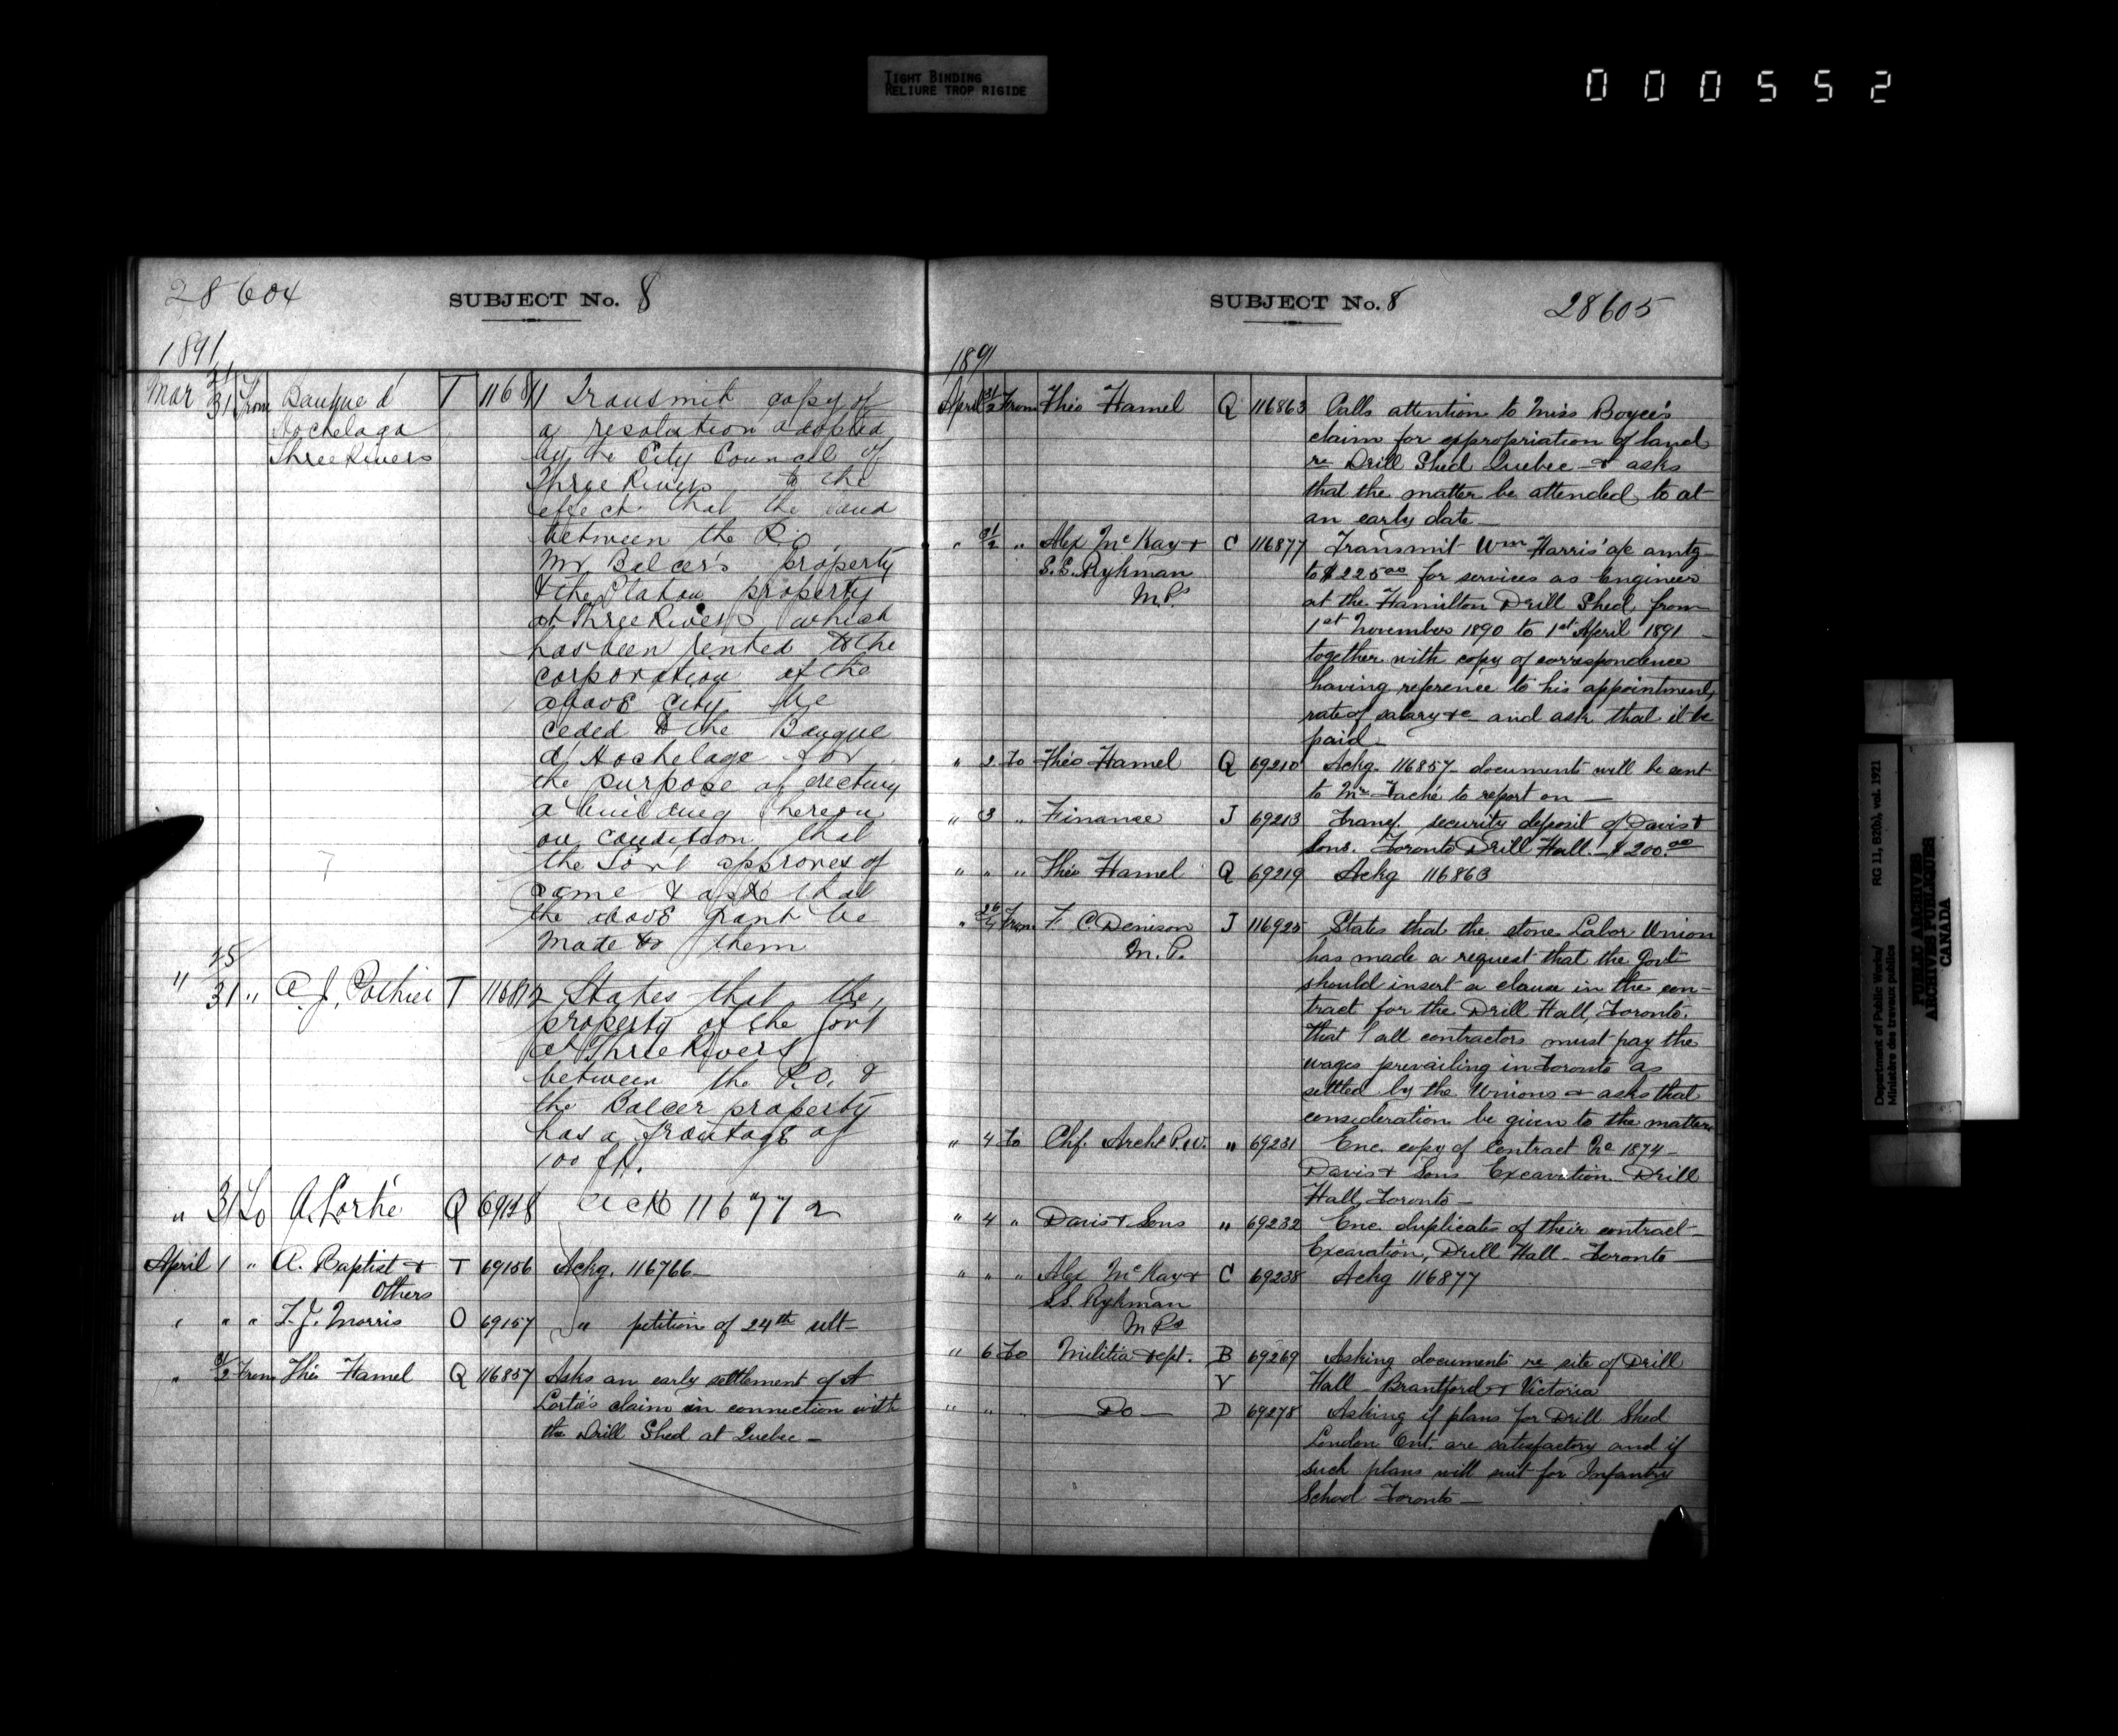 TIGHT BINDING
RELIURE TROP RIGIDE
000552
28604
SUBJECT No. 8
1891
Mar 21/31 From Banque d' T 116811 Transmit copy of
Hochelaga a resolution adopted
Three Rivers by the City Council of
Three Rivers to the
effect that the land
between the P.O.
Mr Balcer's property
& the Platon property
at Three Rivers which
has been rented to the
corporation of the
above city be
ceded to the Banque
d' Hochelaga for
the purpose of erecting
a building thereon
on condition that
the Govt approves of
same & asks that
the above grant be
made to them
" 25/31 " A. J. Pothier T 116812 States that the
property of the Govt
at Three Rivers
between the P.O. &
the Balcer property
has a frontage of
100 ft.
" 31 To A. Lortie Q 69128 Ack 116772
April 1 " A. Baptist & T 69156 Ackg. 116766
Others
" " " F. J. Morris O 69157 " petition of 24th ult
" 31/2 From Théo Hamel Q 116857 Asks an early settlement of A
Lortie's claim in connection with
the Drill Shed at Quebec
SUBJECT No. 8
28605
1891
April 31/2 From Théo Hamel Q 116863 Calls attention to Miss Boyce's
claim for appropriation of land
re Drill Shed Quebec & asks
that the matter be attended to at
an early date
" 31/2 " Alex McKay & C 116877 Transmit Wm Harris' a/c amtg
S. S. Rykman to $225 00 for services as Engineer
M.Ps at the Hamilton Drill Shed, from
1st November 1890 to 1st April 1891
together with copy of correspondence
having reference to his appointment,
rate of salary &c and ask that it be
paid
" 2 To Théo Hamel Q 69210 Ackg. 116857 documents will be sent
to Mr Taché to report on
" 3 " Finance J 69213 Transf. security deposit of Davis &
Sons. Toronto Drill Hall. $200.00
" " " Théo Hamel Q 69219 Ackg 116863
" 26/4 From F. C. Denison J 116925 States that the stone Labor Union
M.P. has made a request that the Govt
should insert a clause in the con-
tract for the Drill Hall, Toronto.
that all contractors must pay the
wages prevailing in Toronto as
settled by the Unions & asks that
consideration be given to the matter
" 4 To Chf. Archt P.W. " 69231 Enc. copy of Contract No 1874
Davis & Sons Excavation Drill
Hall, Toronto
" 4 " Davis & Sons " 69232 Enc. duplicates of their contract
Excavation, Drill Hall Toronto
" " " Alex McKay & C 69238 Ackg 116877
S.S. Rykman
M Ps
" 6 To Militia dept. B 69269 Asking documents re site of Drill
V Hall Brantford & Victoria
" " " Do D 69278 Asking if plans for Drill Shed
London Ont. are satisfactory and if
such plans will suit for Infantry
School Toronto
Department of Public Works/ RG 11, B2(b), vol. 1921
Ministère des travaux publics
PUBLIC ARCHIVES
ARCHIVES PUBLIQUES
CANADA